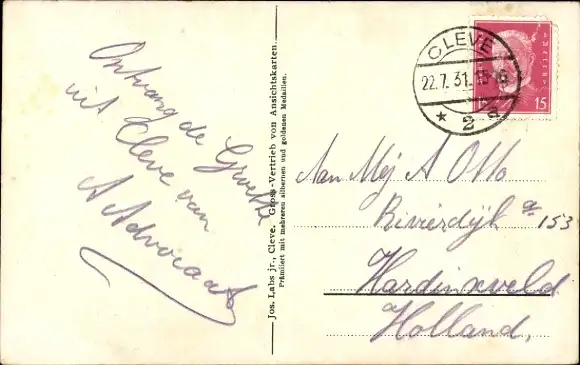 Ontvang de Groeten
uit Cleve van
A Advocaat
Jos. Labs jr., Cleve. Gross-Vertrieb von Ansichtskarten.
Prämiiert mit mehreren silbernen und goldenen Medaillen.
CLEVE
22.7.31.
* 2 a
15
Aan Mej A Otto
Rivierdijk a 153
Hardinxveld
Holland,